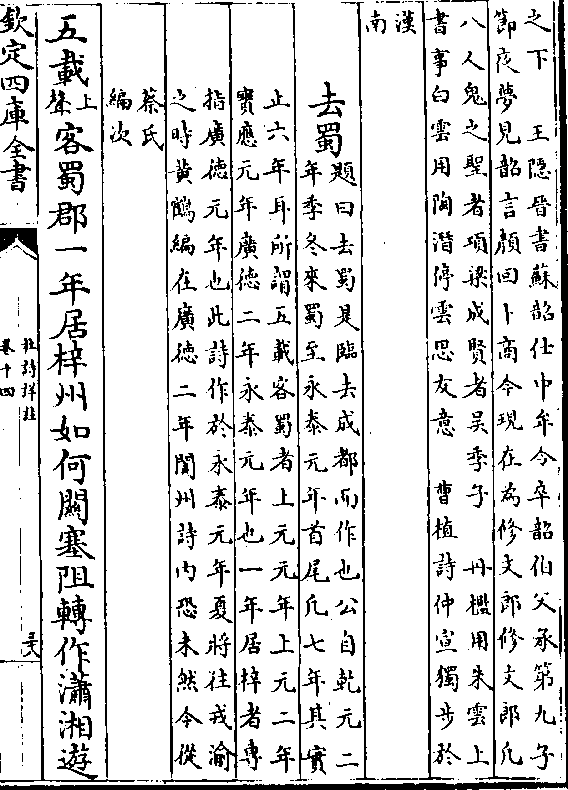 之下　王隱晉書蘇韶仕中年令卒韶伯父承第九子
節夜夢見韶言顏回卜商今現在為修文郎修文郎凡
八人鬼之聖者項梁成賢者吳季子　丹檻用朱雲上
書事白雲用陶潛停雲思友意　曹植詩仲宣獨步於
漢
南
去蜀題曰去蜀是臨去成都而作也公自乾元二
年季冬來蜀至永泰元年首尾凡七年其實
止六年耳所謂五載客蜀者上元元年上元二年
寶應元年廣德二年永泰元年也一年居梓者專
指廣德元年也此詩作於永泰元年夏將往戎渝
之時黃鶴編在廣德二年閬州詩內恐未然今從
蔡氏
編次
五載上聲客蜀郡一年居梓州如何關塞阻轉作瀟湘遊
欽定四庫全書
杜詩詳註
卷十四
三六